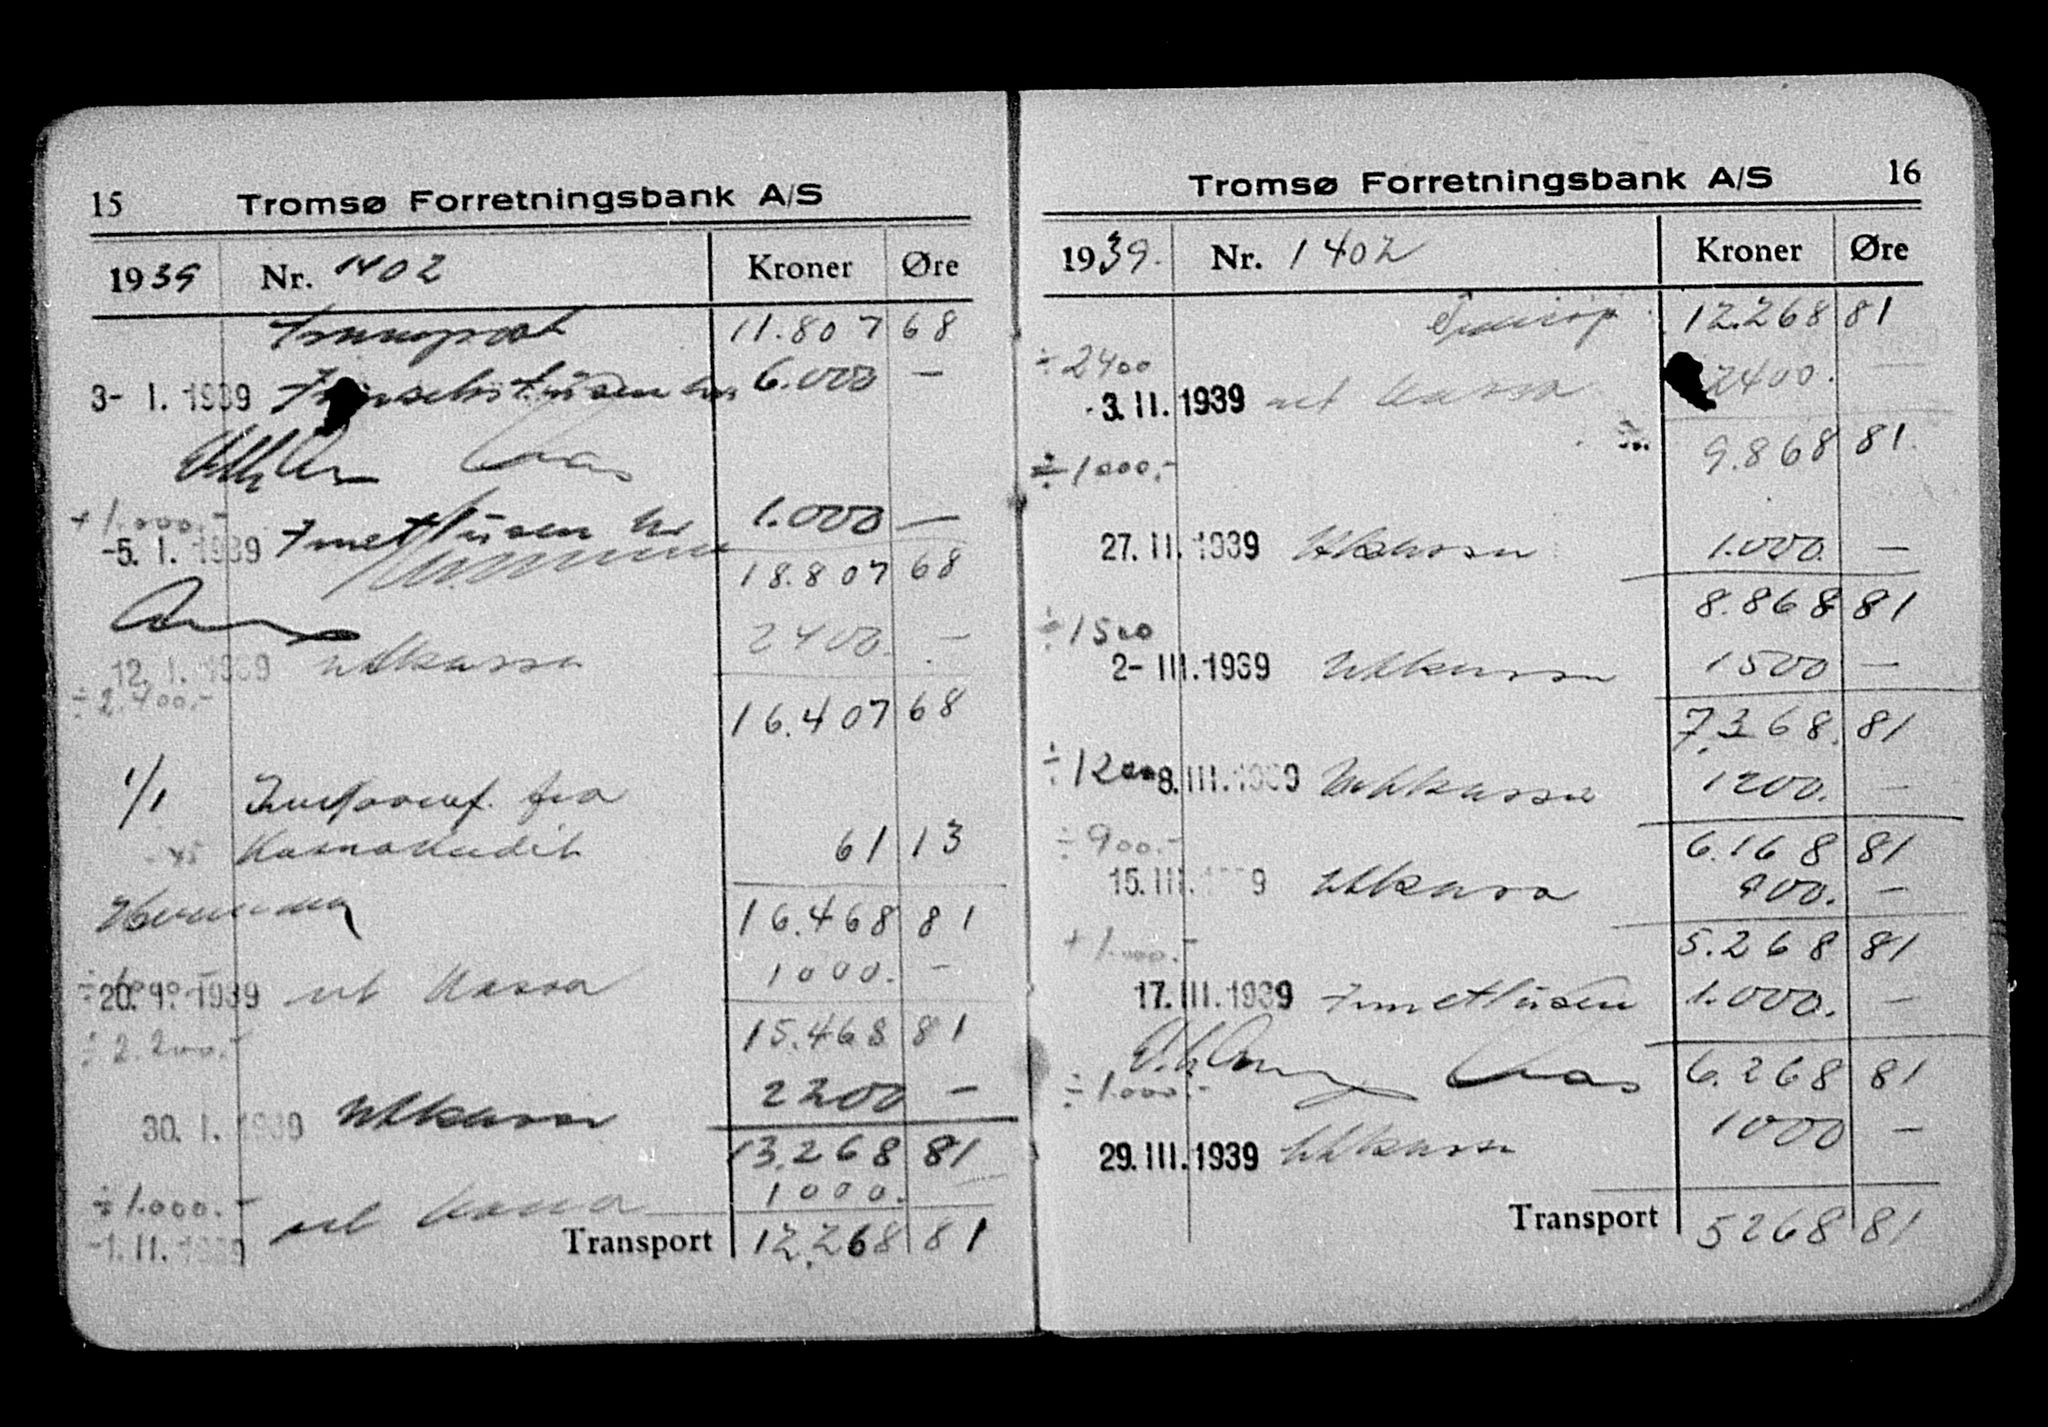 15 Tromsø Forretningsbank A/S
1939 Nr. 1402 Kroner Øre
Transport 11.807 68
3- I. 1939 6.000 —
+1.000.-
-5. I. 1939 1.000 —
18.807 68
12. I. 1939 utkassa 2400. -
÷2.400.-
16.407 68
1/1 fra
Kassakredit 61 13
16.468 81
20. 1. 1939 ut Kassa 1000. -
15.468 81
÷2.200.-
30. I. 1939 utkassa 2200 -
13.268 81
÷1.000.- 1000. -
-1. II. 1939 ut kassa
Transport 12.268 81
Tromsø Forretningsbank A/S 16
1939. Nr. 1402 Kroner Øre
12.268 81
÷2400
-3. II. 1939 ut kassa 2400. —
9.868 81.
÷1000.-
27. II. 1939 utkassa 1.000. —
8.868 81
÷1500
2- III. 1939 utkassa 1500 —
7.368. 81
÷1200 8. III. 1939 utkassa 1200. -
6.168 81
÷900.-
15. III. 1939 utkassa 900. -
5.268 81
+1.000.-
17. III. 1939 1.000. —
6.268 81
÷1.000.-
29. III. 1939 utkassa 1000 —
Transport 5268 81